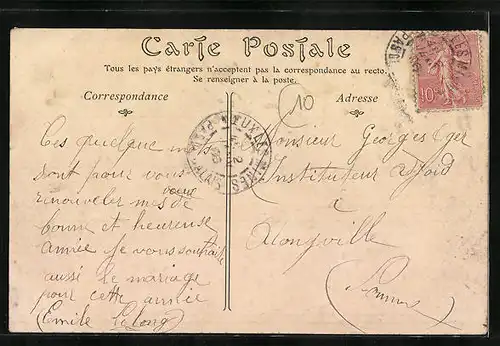 Carte Postale
Tous les pays étrangers n'acceptent pas la correspondance au recto.
Se renseigner à la poste.
Correspondance
Adresse
10
Ces quelque mots
sont pour vous
renouveler mes vœus de
bonne et heureuse
année je vous souhaite
aussi le mariage
pour cette année
(Emile Lelong)
Monsieur Georges
Instituteur adjoint
à
(Somme)
10